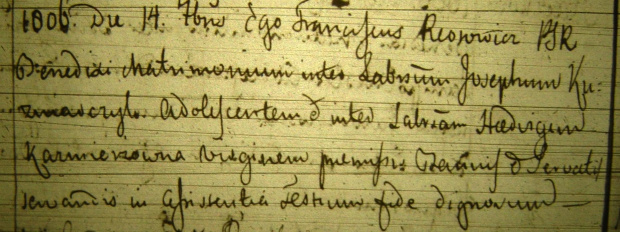 1806. Die 14. 7bris Ego Franciscus
Benedixi Matrimonium inter Labrum Josephum Ku-
zmaszczyk. Adolescentem & inter Labram Hedvigem
Kazmierzowna Virginem premissis Bannis & Servatis
servandis in assistentia Testium fide dignorum —